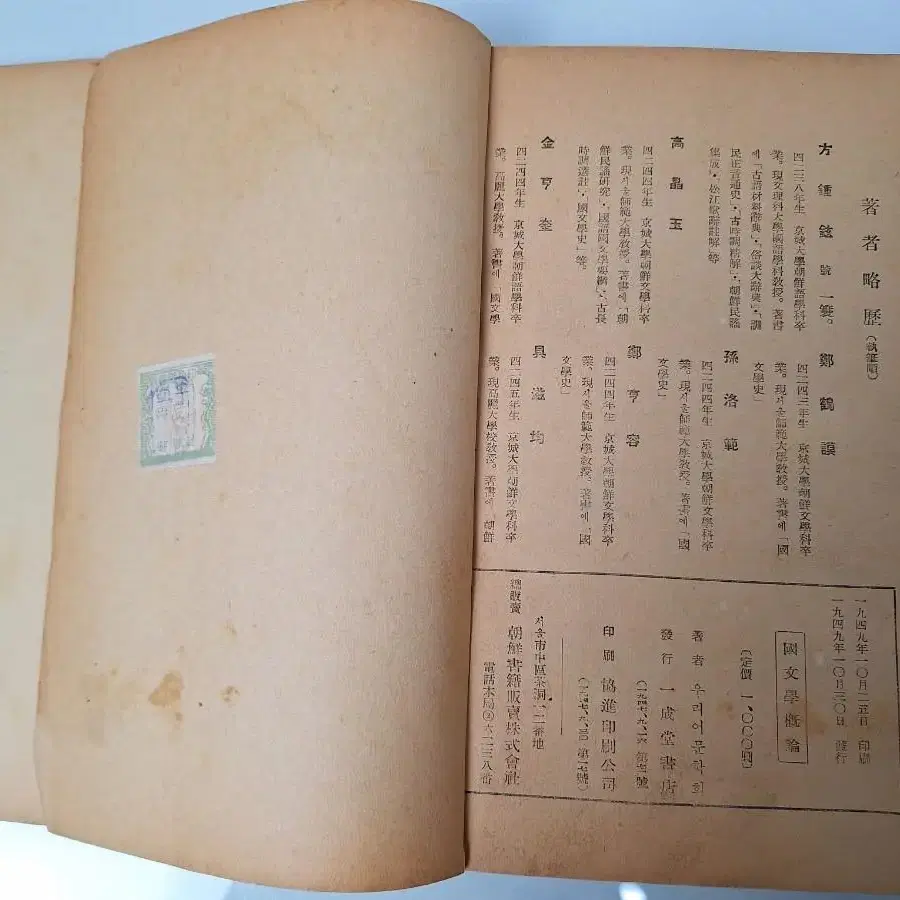 著者略歷(執筆順)
方鍾鉉 號 一簑。
四二三八年生 京城大學朝鮮語學科卒
業。現文理科大學國語學科敎授。著書
에「古語材料辭典」·「俗談大辭典」·「訓
民正音通史」·「古時調精解」·「朝鮮民謠
集成」·「松江歌辭註解」等
高晶玉
四二四四年生 京城大學朝鮮文學科卒
業。現서울師範大學敎授。著書에「朝
鮮民謠硏究」·「國語國文學要綱」·「古長
時調選註」·「國文學史」等。
金亨奎
四二四四年生 京城大學朝鮮語學科卒
業。高麗大學敎授。著書에「國文學
鄭鶴謨
四二四三年生 京城大學朝鮮文學科卒
業。現서울師範大學敎授。著書에「國
文學史」
孫洛範
四二四四年生 京城大學朝鮮文學科卒
業。現서울師範大學敎授。著書에「國
文學史」
鄭亨容
四二四四年生 京城大學朝鮮文學科卒
業。現서울師範大學敎授。著書에「國
文學史」
具滋均
四二四五年生 京城大學朝鮮文學科卒
業。現高麗大學校敎授。著書에「朝鮮
一九四九年一〇月二五日 印刷
一九四九年一〇月三〇日 發行
國文學槪論
(定價 一、〇〇〇圓)
著者 우리어문학회
發行 一成堂書店
印刷 協進印刷公司
서울市中區茶洞
總販賣 朝鮮書籍販賣株式會社
電話本局②六二三八番